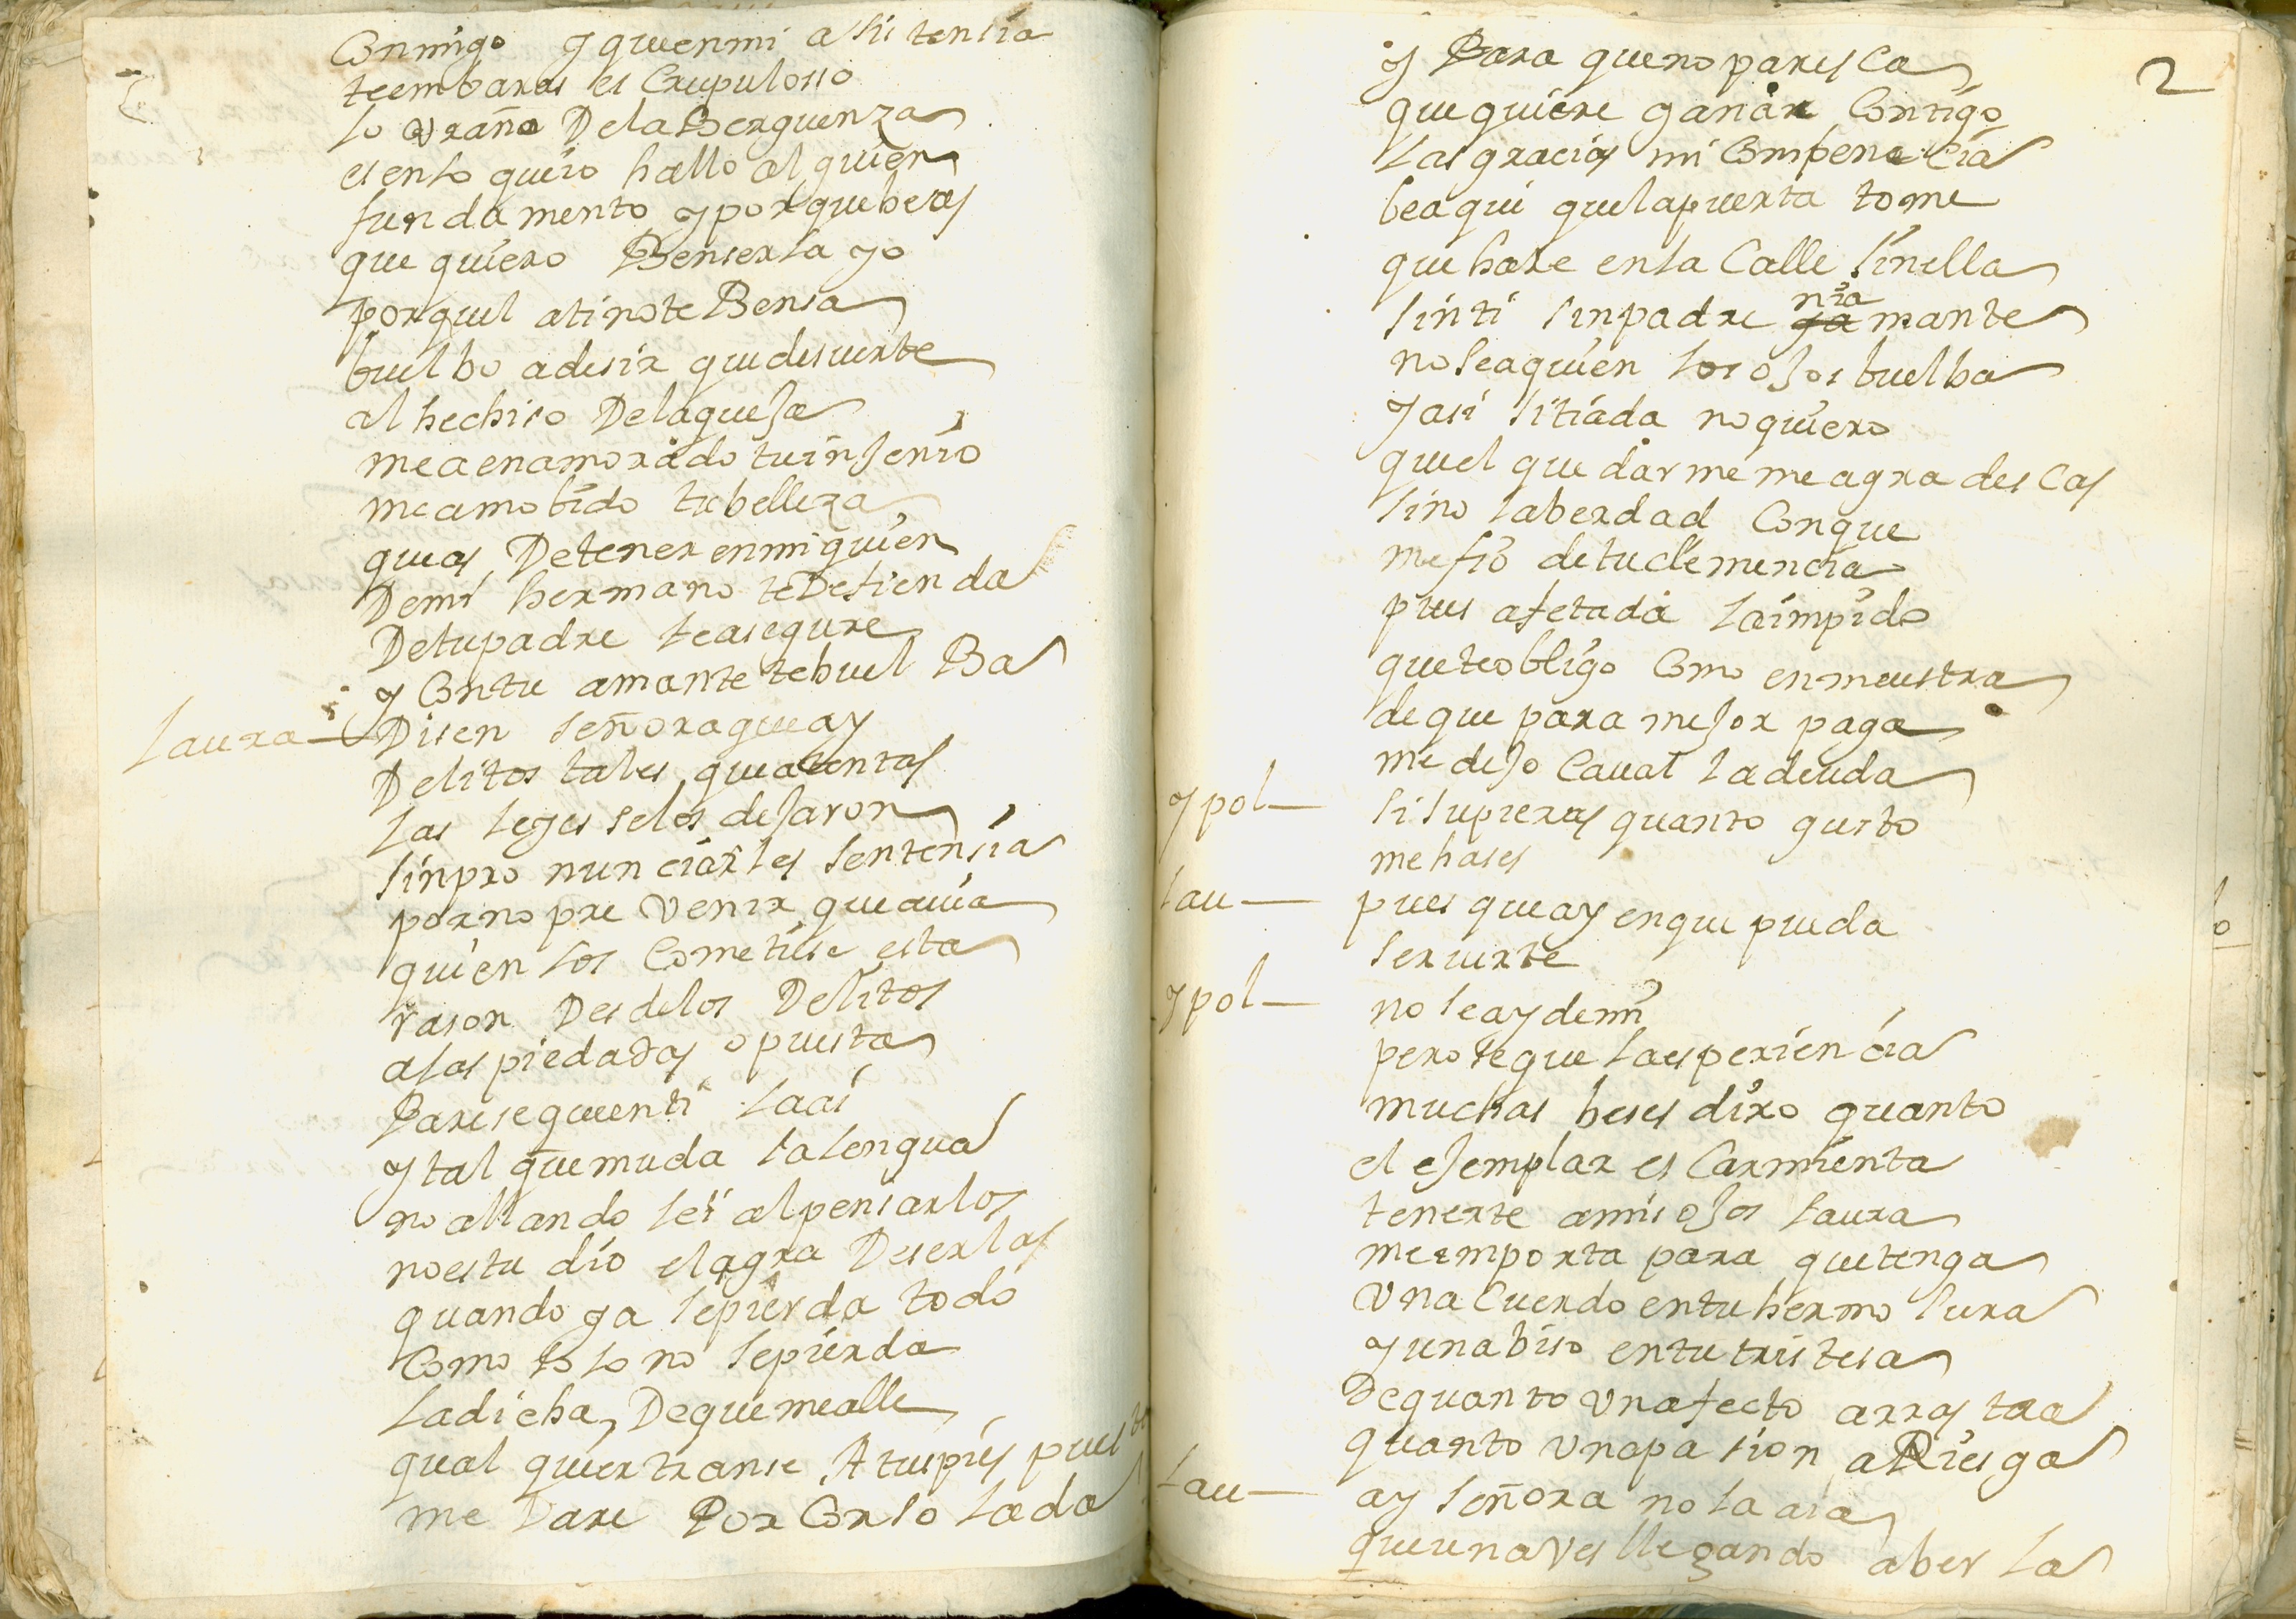 Conmigo y queenmi asistensia
teembaras es Crupulosso
lo vraño Delaberguenza
esento quiso hallo alguien
fundamento yporqueberas
que quiero Benserla yo
porquel atinoteBensa
buelbo adesir quedesuerte
al hechiso Delaquesa
meaenamorado tuinJenio
meamobido tubelleza
queas Detener enmi quien
Demi hermano teDefienda
Detupadre teasegure
y Contu amante tebuelBa
Laura— Disen señoraqueay
Delitos tales, queatentas
las leyes selos deJaron
sinpro nunciarles sentensia
porno pre venir queauia
quien los Cometiese esta
rason Desdelos Delitos
alas piedadas opuesta
Paresequeenti laai
ytal quemuda lalengua
no allando lei alpensarlos
noestudio elagra Deserlas
quando ya sepierda todo
Como solo no sepierda
Ladicha, Dequemealle
qual quiertranse, Atuspies puesto
me Dare Por Conlo lada
2
y Para queno paresCa
quequiere ganar Contigo
las gracias mi Compenesia
beaqui quelapuerta tome
quehare enla Calle sinella
sinti sinpadre nia ya mante
noseaquien los oJos buelba
yasi sitiada noquiero
quel quedarme meagradesCas
sino laberdad Conque
mefio detuclemencia
pues afetada laimpido
queteobligo Como enmuestra
deque para meJor paga
me deJo Caual ladeuda
ypol— sisupieras quanto gusto
mehases
Lau— pues queay enque pueda
seruirte
ypol— no seaydemi
pero seque laesperiencia
muchas beses dixo quanto
el eJemplar esCarmienta
tenerte amisoJos Laura
meimporta para quetenga
vnaCuerdo entuhermosura
yunabiso entutristesa
Dequanto vnafecto arrastra
quanto vnapasion aRiesga
Lau— ay señora nolaaia
queunaves llegando aber la